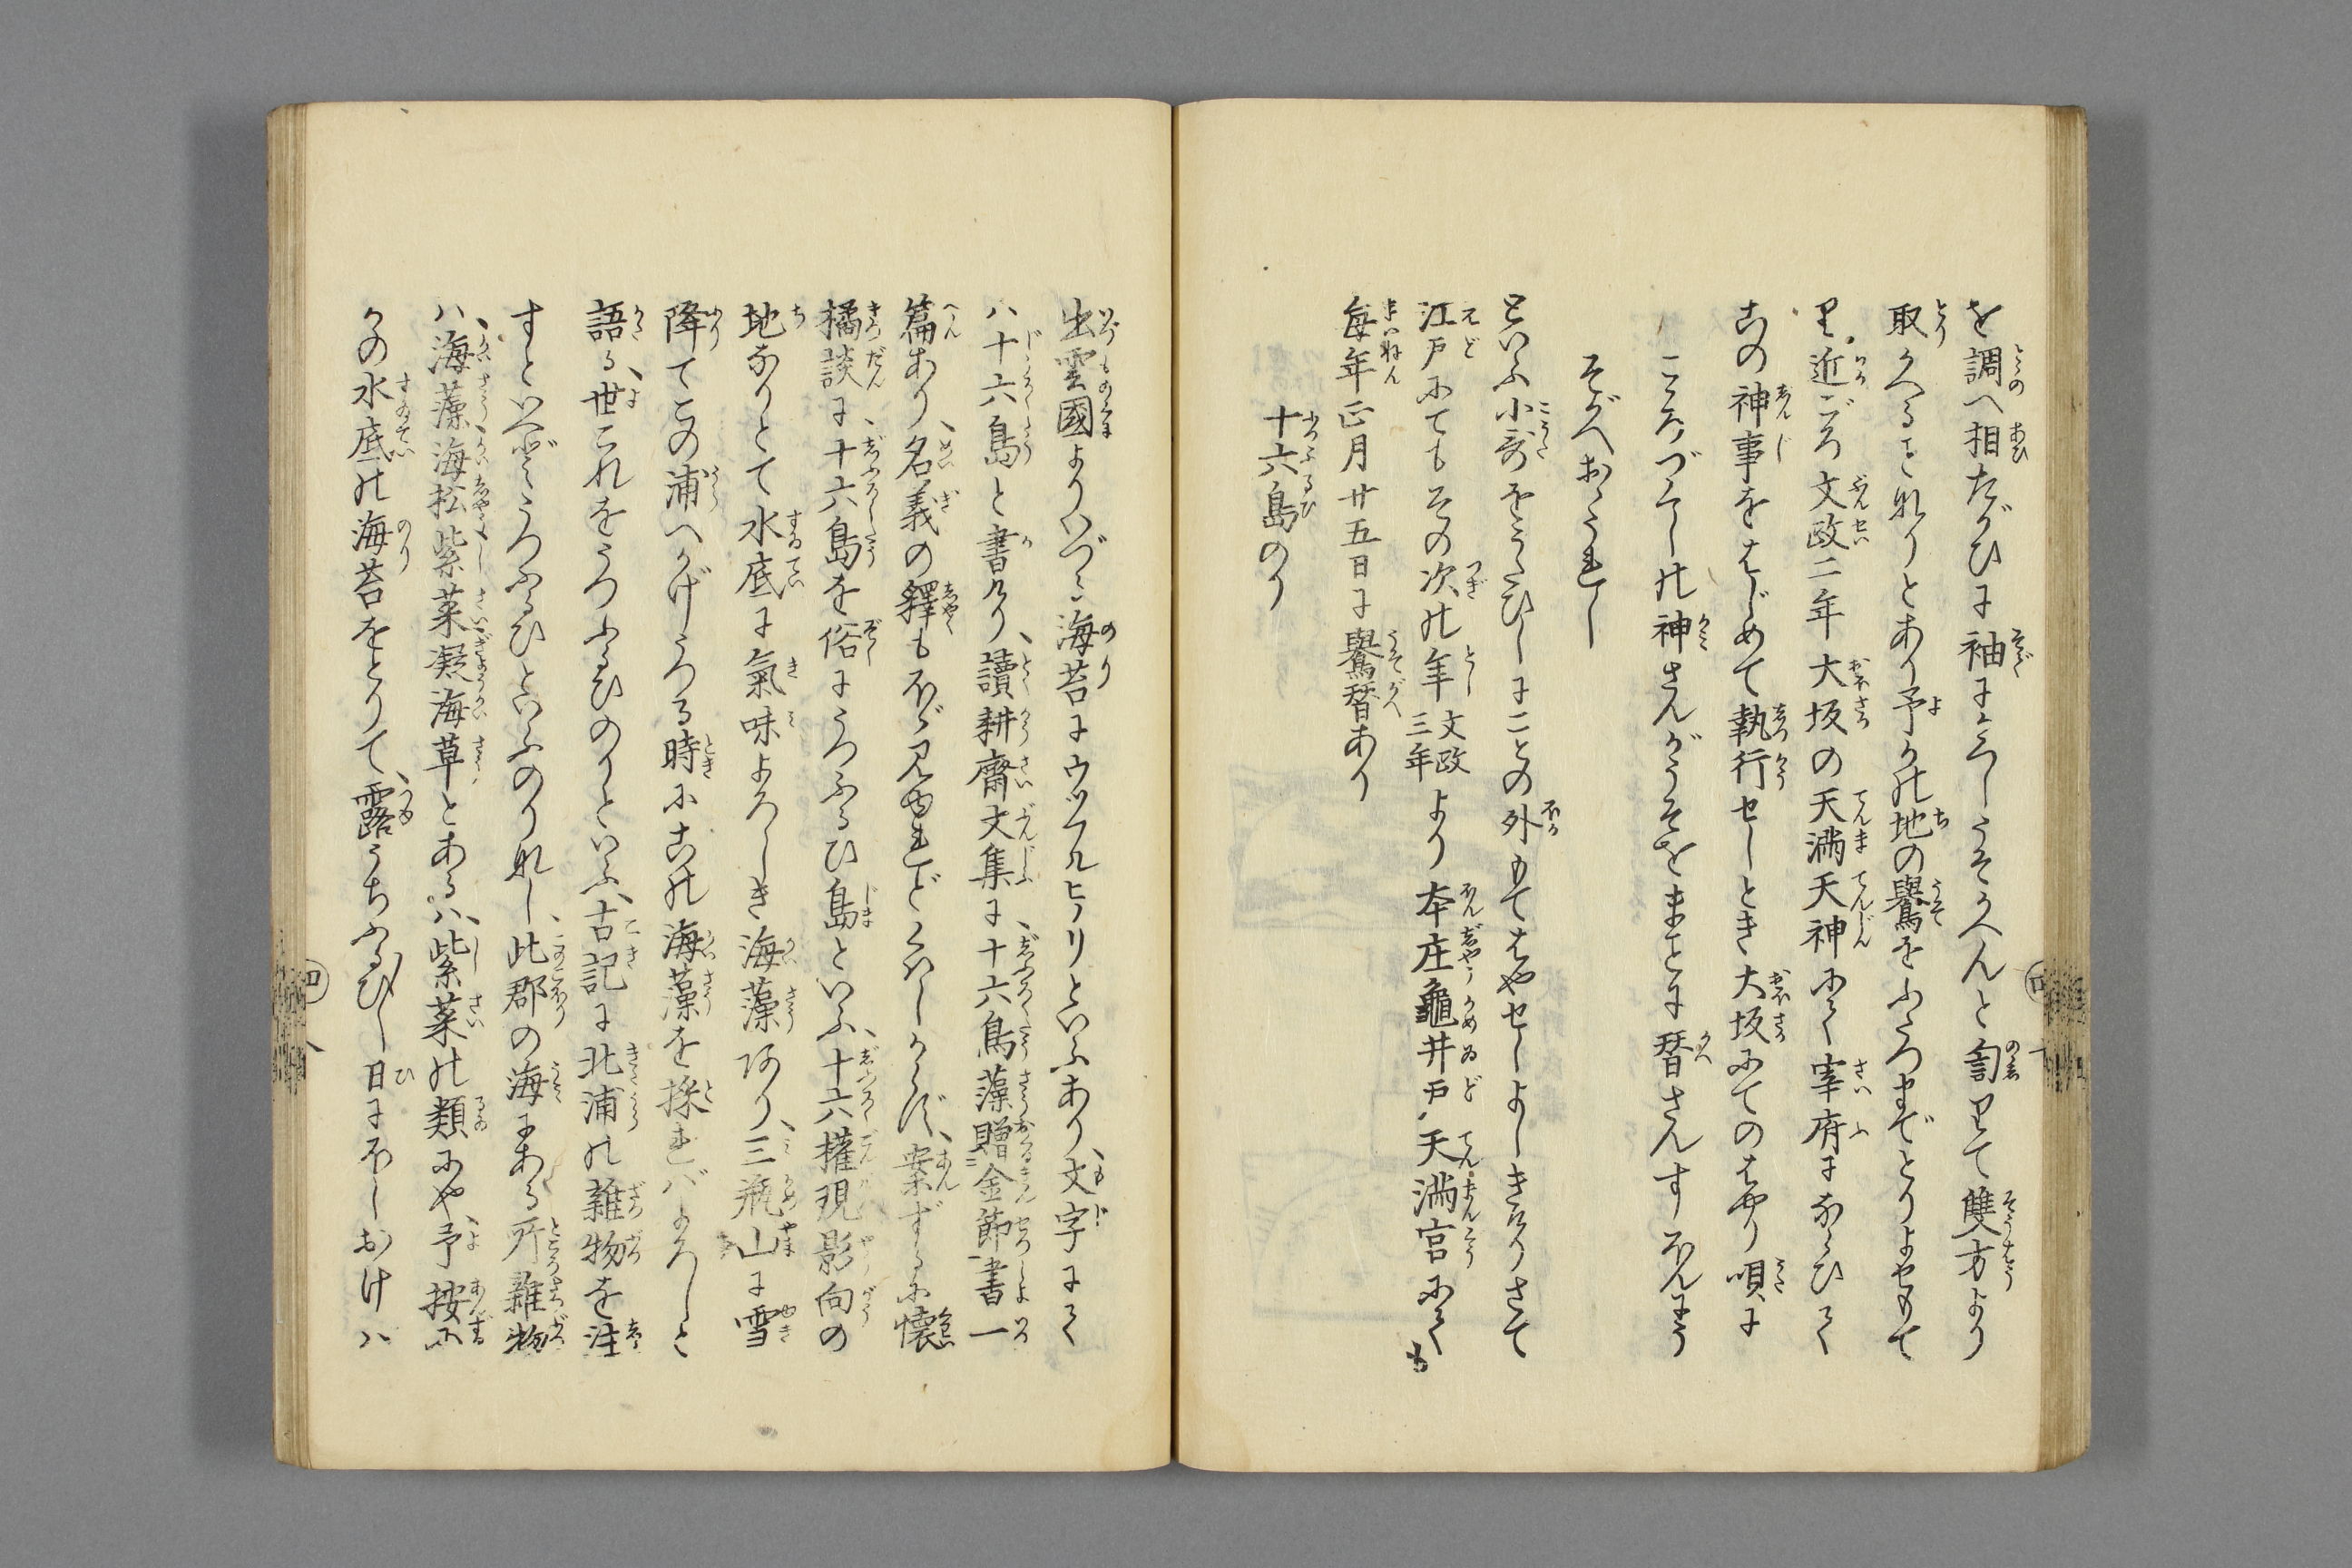 を調へ相たがひに袖にかくしうそかへんと訇りて雙方より
取かへることなりとあり予かの地の鷽をふたつまでとりよせもて
り近ごろ文政二年大坂の天満天神にて宰府にならひて
この神事をはじめて執行せしとき大坂にてのはやり唄に
こゝろづくしの神さんがうそをまことに替さんすほんにう
そがへおゝうれし
といふ小哥をうたひしにことの外もてはやせしよしきけりさて
江戸にてもその次の年文政三年より本庄龜井戸天満宮にても
毎年正月廿五日に鷽替あり
十六島のり
出雲國よりいづる海苔にウツフルヒノリといふあり文字にて
ハ十六島と書けり、讀耕齋文集に、十六島藻贈金節書一
篇あり、名義の釋も亦見ゆれどくはしからず、案ずるに懐
橘談に、十六島を俗にうつふるひ島といふ、十六權現影向の
地なりとて水底に氣味よろしき海藻あり、三瓶山に雪
降てこの浦へかげうつる時にこの海藻を採ればよろしと
語る、世これをうつふるひのりといふ、古記に北浦の雑物を注
すといへどもうつふるひといふのりなし、此郡の海にある所雑物
ハ、海藻、海松紫菜凝海草とあるハ、紫菜の類にや、予按に
かの水底の海苔をとりて、露うちふるひし日にほしおけハ